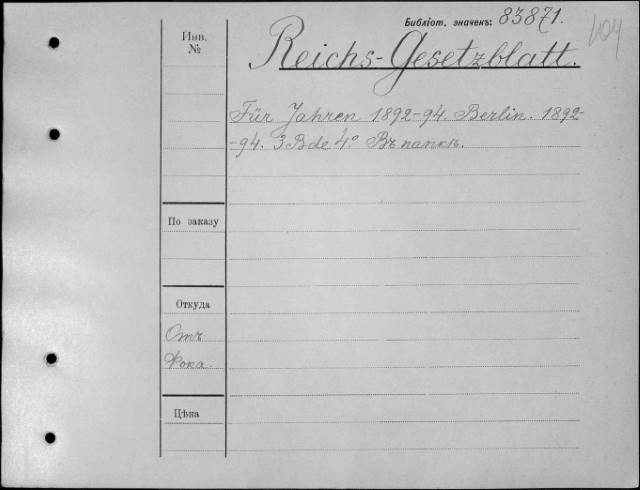 Библіот. значекъ: 83871.
104
Инв.
№
Reichs-Gesetzblatt.
Für Jahren 1892-94. Berlin. 1892-
-94. 3 Bde 4.° Въ папкѣ.
По заказу
Откуда
Отъ
Фока.
Цѣна